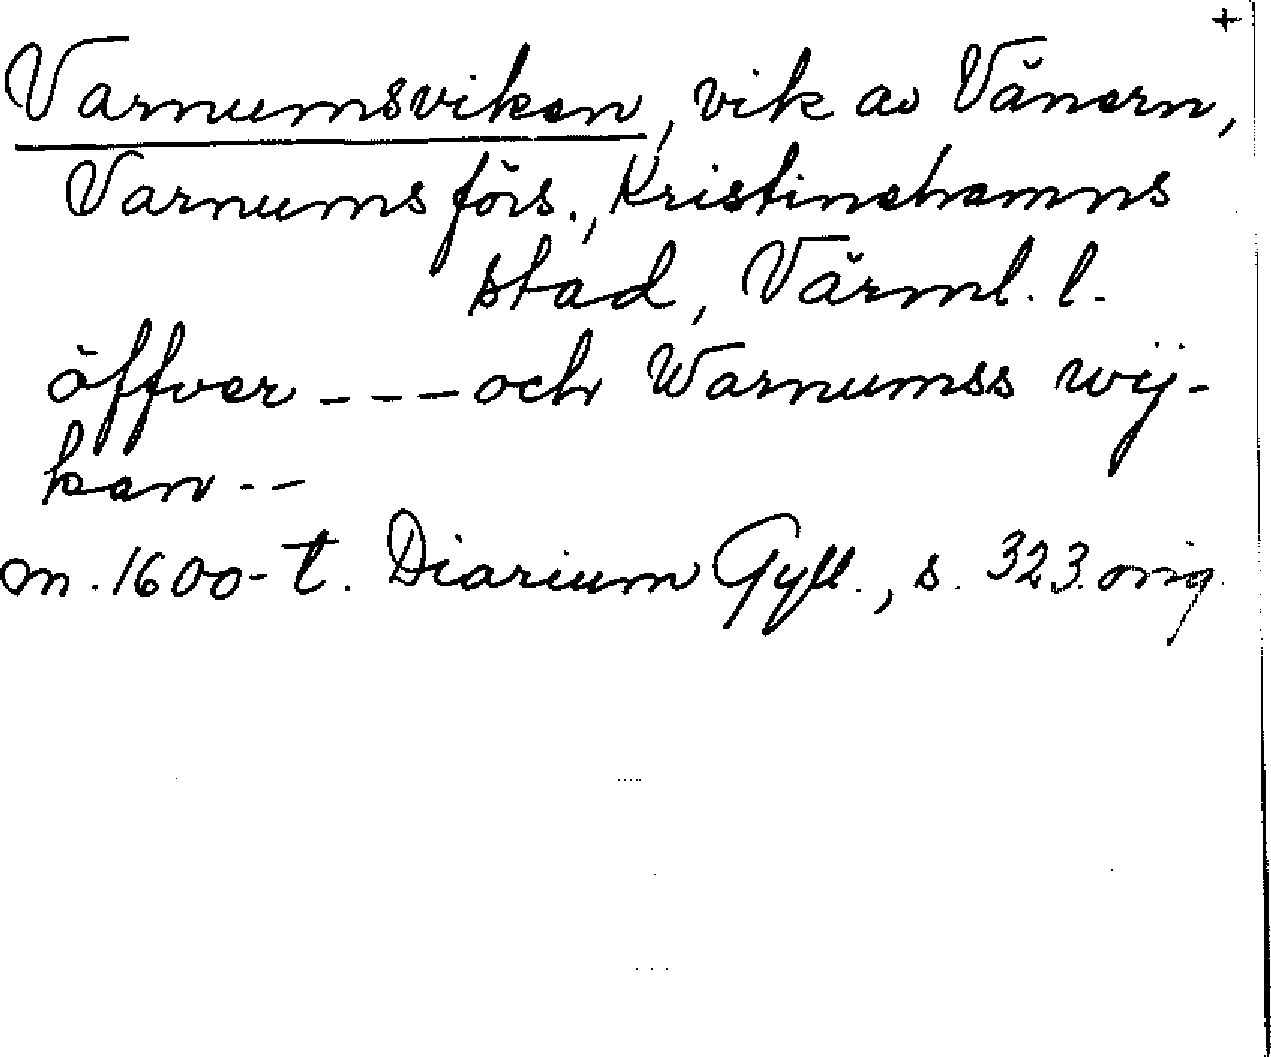 +
Varnumsviken, vik av Vänern,
Varnums förs., Kristinehamns
stad, Värml. l.
öffver --- och Warnumss wÿ-
ken --
m. 1600-t. Diarium Gyll., s. 323. orig.